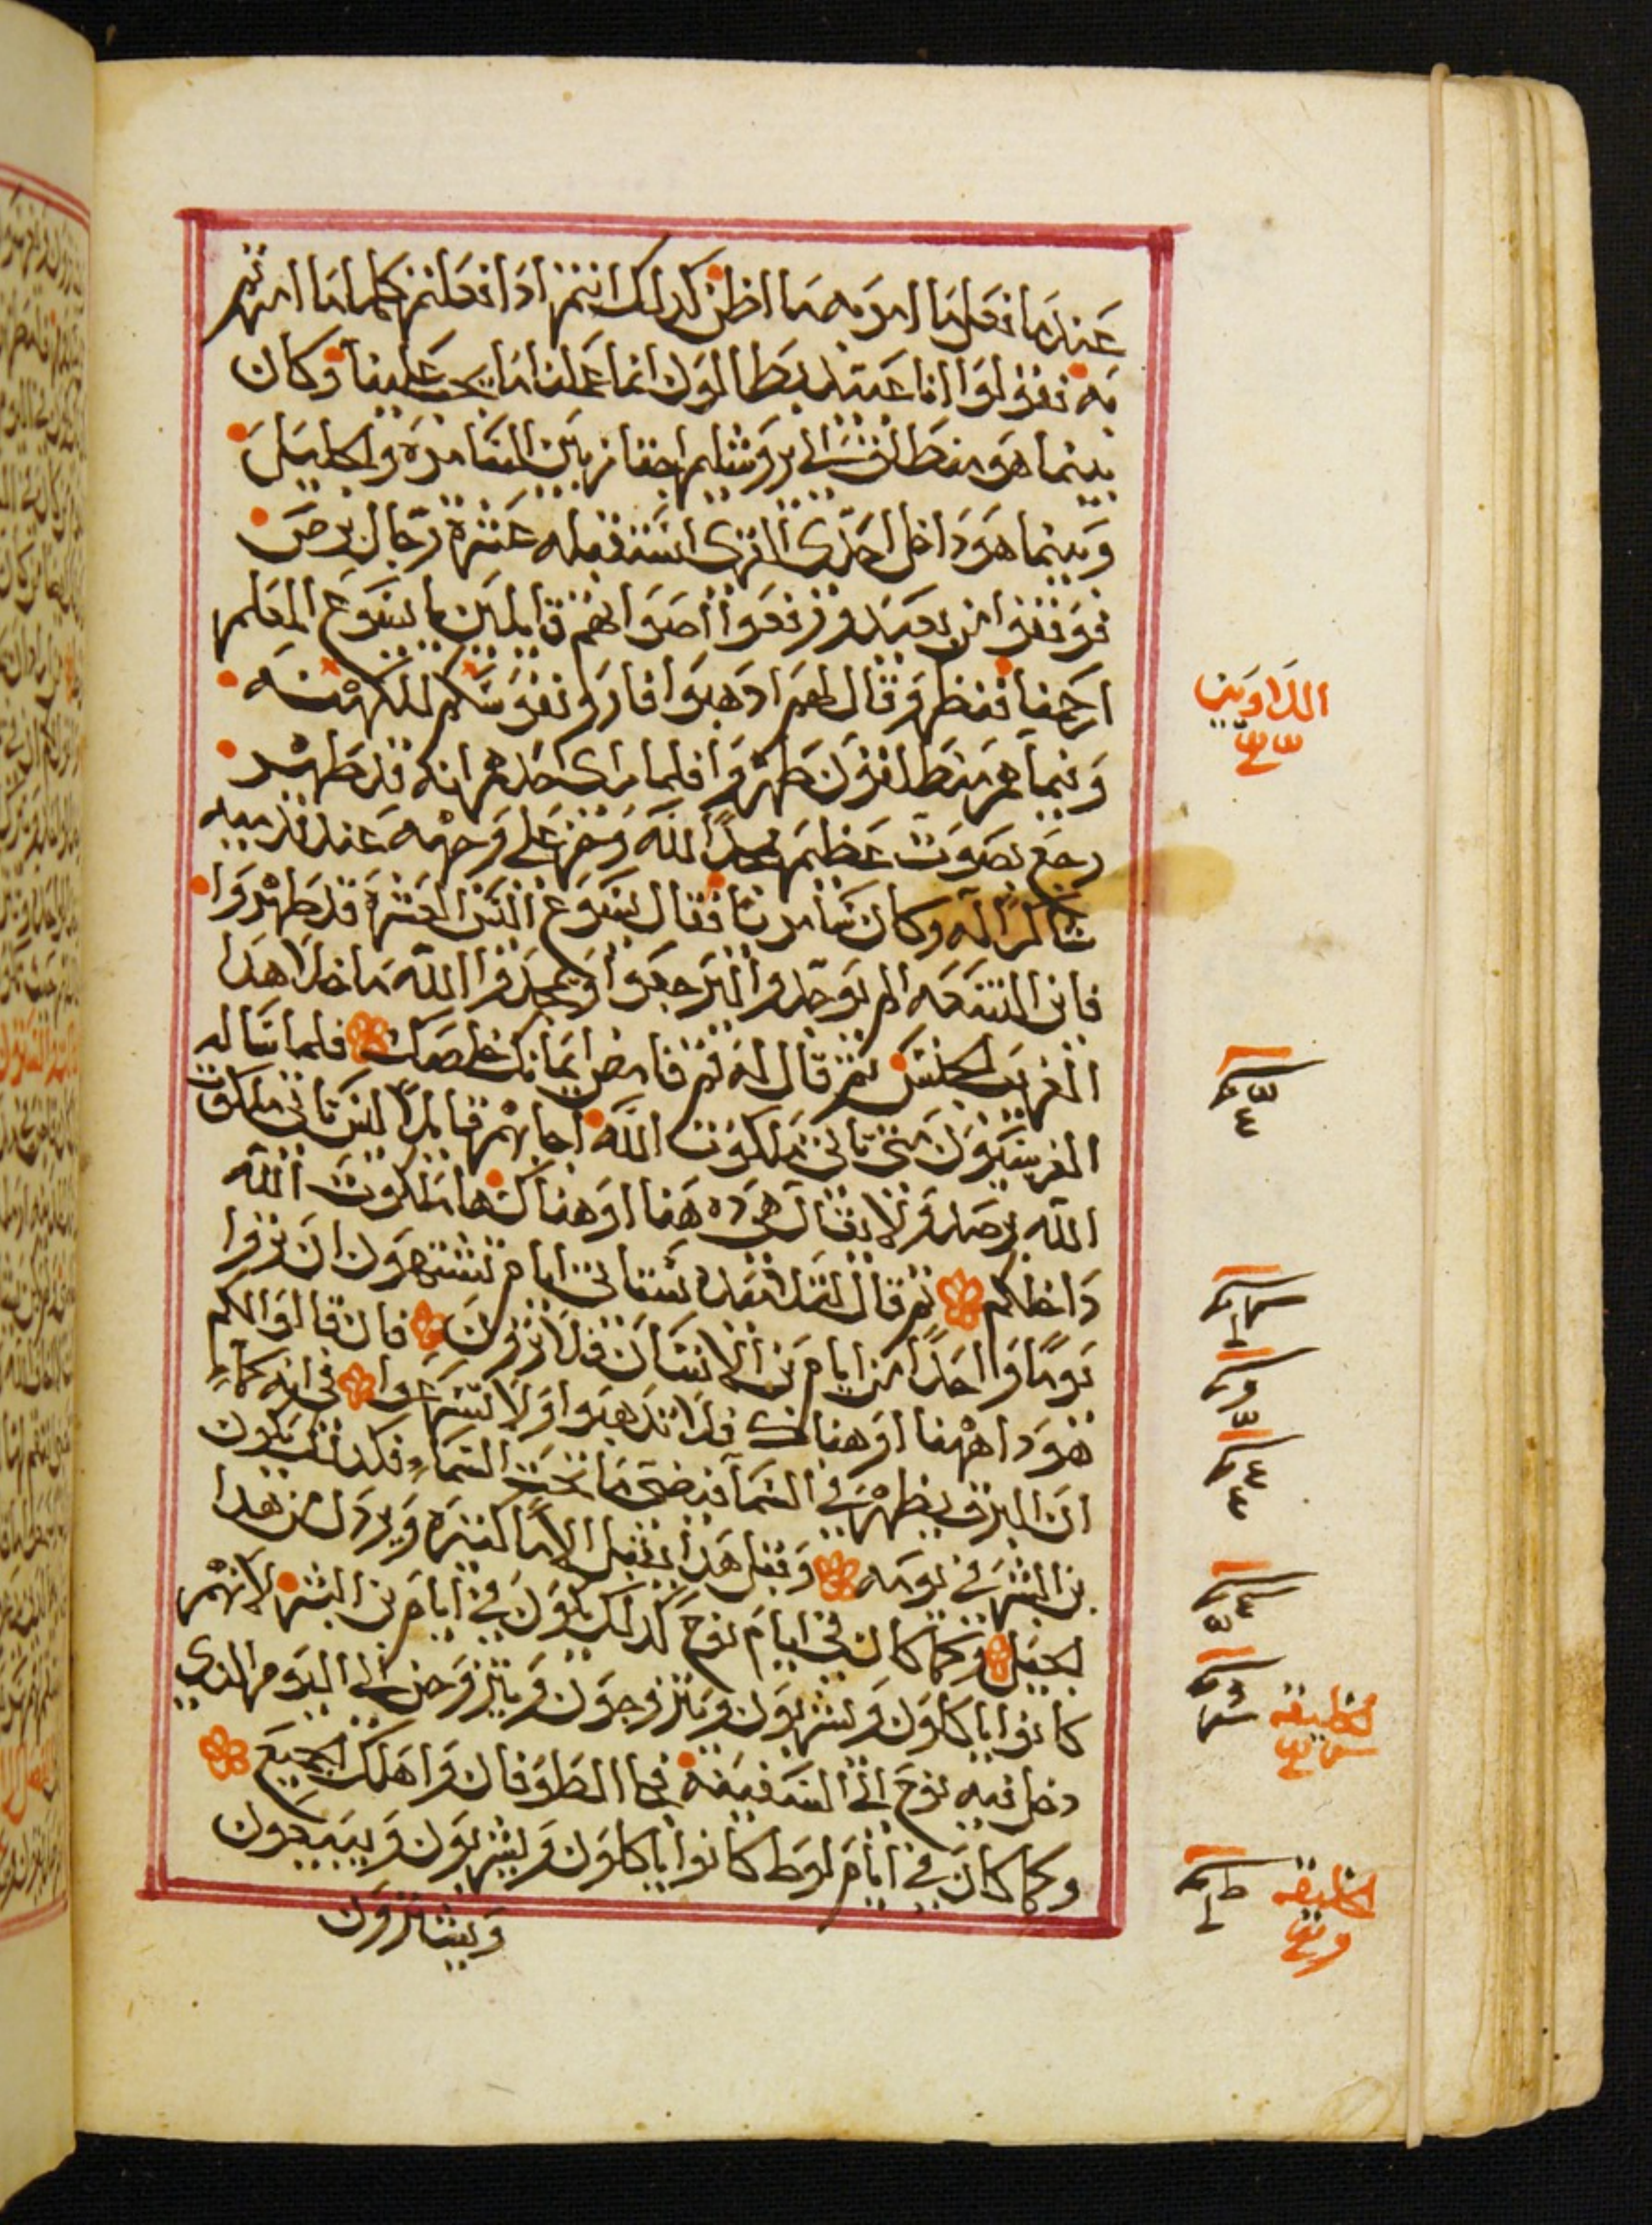 عندما فعل ما امر به ما اظن كدلك انتم ادا فعلتم كلما امرتم
به فقولوا انا عبيد بطالون انما عملنا ما يجب علينا وكان
بينما هو منطلق الى يروشليم اجتاز بين السامرة والجليل
وبينما هو داخل احدى القرى استقبله عشرة رجال برص
فوقفوا من بعيد ورفعوا اصواتهم قايلين يا يسوع المعلم
ارحمنا فنظر وقال لهم ادهبوا فاروا نفوسكم للكهنه
وبينما هم منطلقون طهروا فلما راى احدهم انه قد طهر
رجع بصوت عظيم يمجد الله وخر على وجهه عند قدميه
شاكرا له وكان سامريا فقال يسوع اليس العشرة قد طهروا
فاين التسعه الم يوجدوا ليرجعوا ويمجدوا الله ما خلا هدا
الغريب الجنس ثم قال له قم فامض ايمانك خلصك فلما ساله
الفريسيون متى تاتى ملكوت الله اجابهم قايلا ليس تاتى ملكوت
الله برصد ولا يقال هى ده هنا او هناك ها ملكوت الله
داخلكم ثم قال لتلاميده ستاتى ايام تشتهون ان تروا
يوما واحدا من ايام بن الانسان فلا ترون فان قالوا لكم
هودا ههنا او هناك فلا تدهبوا ولا تسرعوا فى انه كما
ان البرق يظهر فى السما فيضى ما تحت السماء فكدلك يكون
بن البشر فى يومه وقبل هدا يقبل الاما كثيره ويردل من هدا
الجيل وكما كان فى ايام نوح كدلك يكون فى ايام بن البشر لانهم
كانوا ياكلون ويشربون ويتزوجون ويتزوجن الى اليوم الدى
دخل فيه نوح الى السفينة فجا الطوفان واهلك الجميع
وكما كان فى ايام لوط كانوا ياكلون ويشربون ويبيعون
ويشترون
الخليقه
الخليقه